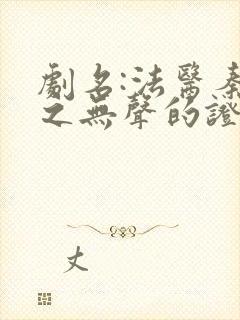 劇名:法醫秦
之無聲的證
丈